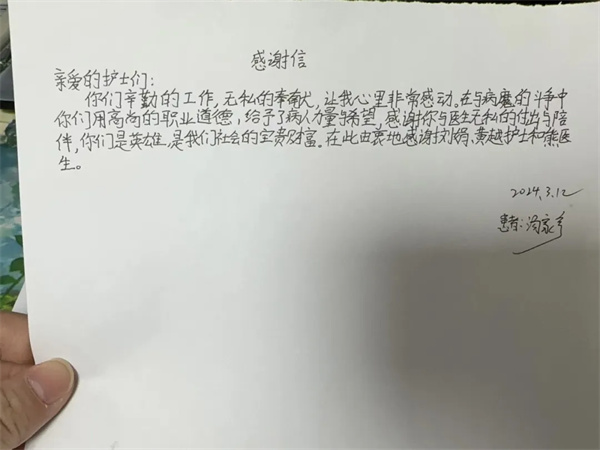 感谢信
亲爱的护士们:
你们辛勤的工作,无私的奉献,让我心里非常感动。在与病魔的斗争中
你们用高尚的职业道德,给予了病人力量与希望,感谢你与医生无私的付出与陪
伴,你们是英雄,是我们社会的宝贵财富。在此由衷地感谢刘娟、黄越护士和熊医
生。
2024.3.12
患者:汤家